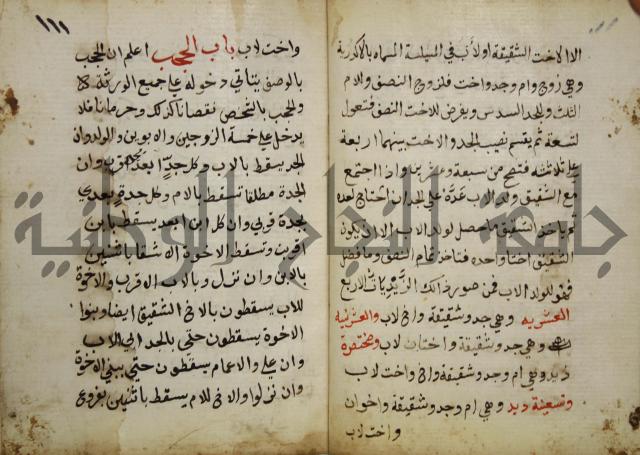 الا الاخت الشقيقة او لأب في المسئلة المسماه بالاكدرية
وهي زوج وام وجد واخت فللزوج النصف وللام
الثلث وللجد السدس ويفرض للاخت النصف فتعول
لتسعة ثم يقسم نصيب الجد والاخت بينهما اربعة
على ثلاثة فتصح من سبعة وعشرين واذا اجتمع
مع الشقيق ولد الاب عده على الجد ان احتاج لعده
ثم ياخذ الشقيق ما حصل لولد الاب الا ان يكون
الشقيق اختا واحده فتاخذ تمام النصف وما فضل
فهو للولد الاب فمن صور ذالك الزيديات الاربع
العشريه وهي جد وشقيقة واخ لاب والعشرينيه
وهي جد وشقيقة واختان لاب ومختصرة
زيد وهي ام وجد وشقيقة واخ واخت لاب
وتسعينة زيد وهي ام وجد وشقيقة واخوان
واخت لاب
١١١
واخت لاب باب الحجب اعلم ان الحجب
بالوصف يتأتي دخوله على جميع الورثة
والحجب بالشخص نقصانا كذلك وحرمانا فلا
يدخل على خمسة الزوجين والابوين والولد وان
الجد يسقط بالاب وكل جد ابعد بجد اقرب وان
الجدة مطلقا تسقط بالام وكل جدة بعدي
بجدة قربي وان كل ابن ابعد يسقط بابن
اقرب وتسقط الاخوة الاشقا باثنين
بالابن وان نزل وبالاب الاقرب والاخوة
للاب يسقطون بالاخ الشقيق ايضا وبنوا
الاخوة يسقطون حتي بالجد ابي الاب
وان علي والاعمام يسقطون حتي ببني الاخوة
وان نزلوا والاخ للام يسقط باثنين بفروع
جامعة النجاح الوطنية